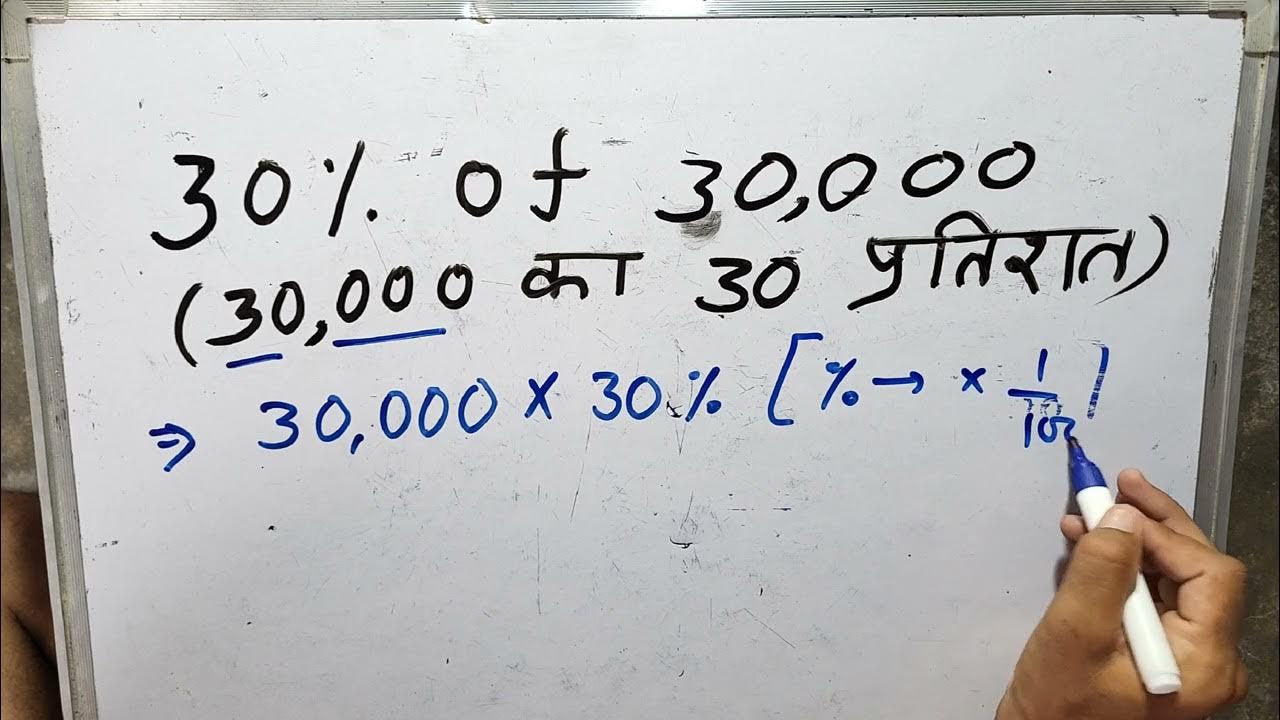 30% of 30,000
(30,000 का 30 प्रतिशत)
⇒ 30,000 × 30% [% → × 1/100]